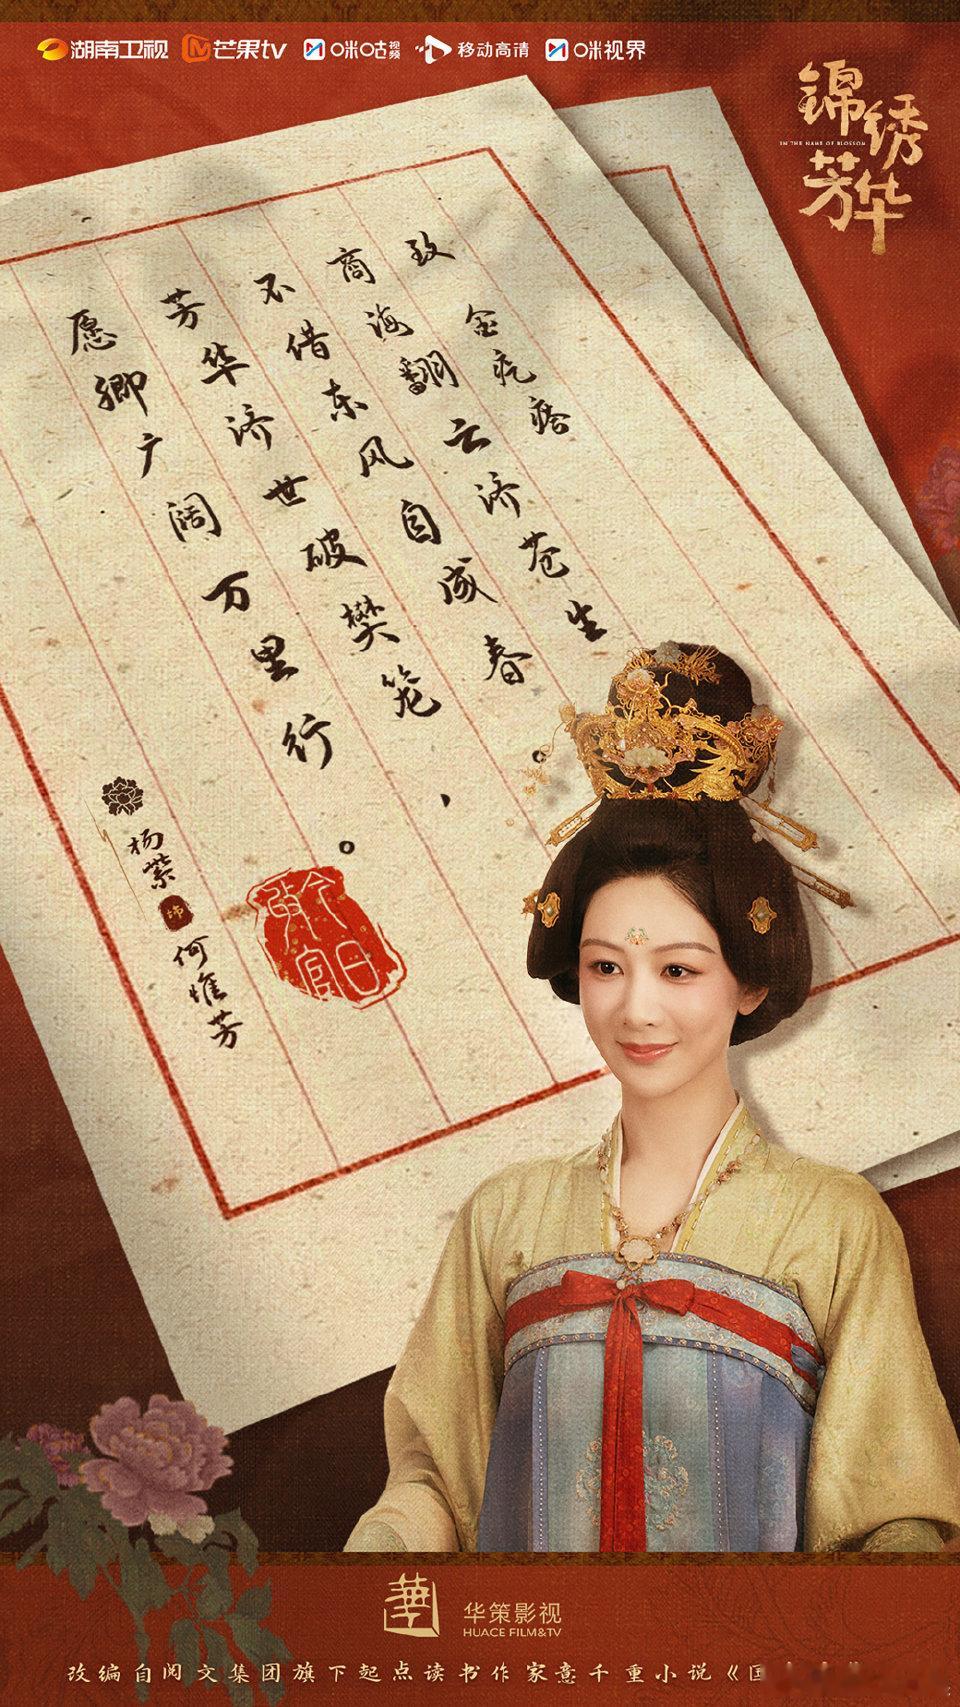 湖南卫视 芒果tv 咪咕视频 移动高清 咪视界
锦绣芳华
IN THE NAME OF BLOSSOM
致金疙瘩
商海翻云济苍生
不借东风自成春。
芳华济世破樊笼，
愿卿广阔万里行。
杨紫 饰 何惟芳
今日
華
华策影视
HUACE FILM&TV
改编自阅文集团旗下起点读书作家意千重小说《国